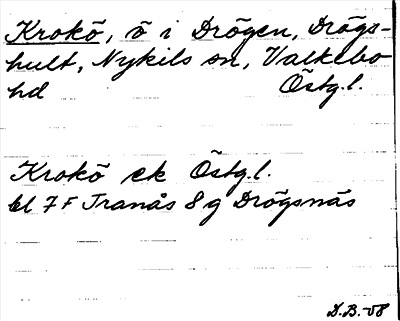 Krokö, ö i Drögen, Drögs-
hult, Nykils sn, Valkebo
hd Östg.l.
Krokö ek Östg.l.
bl 7 F Tranås 8 g Drögsnäs
D.B.-58